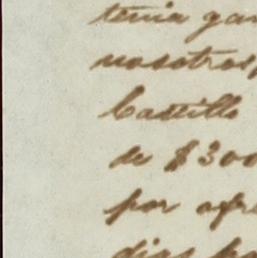 tenia gan
nosotros,
Castillo
de $300
por ofre
dias pa